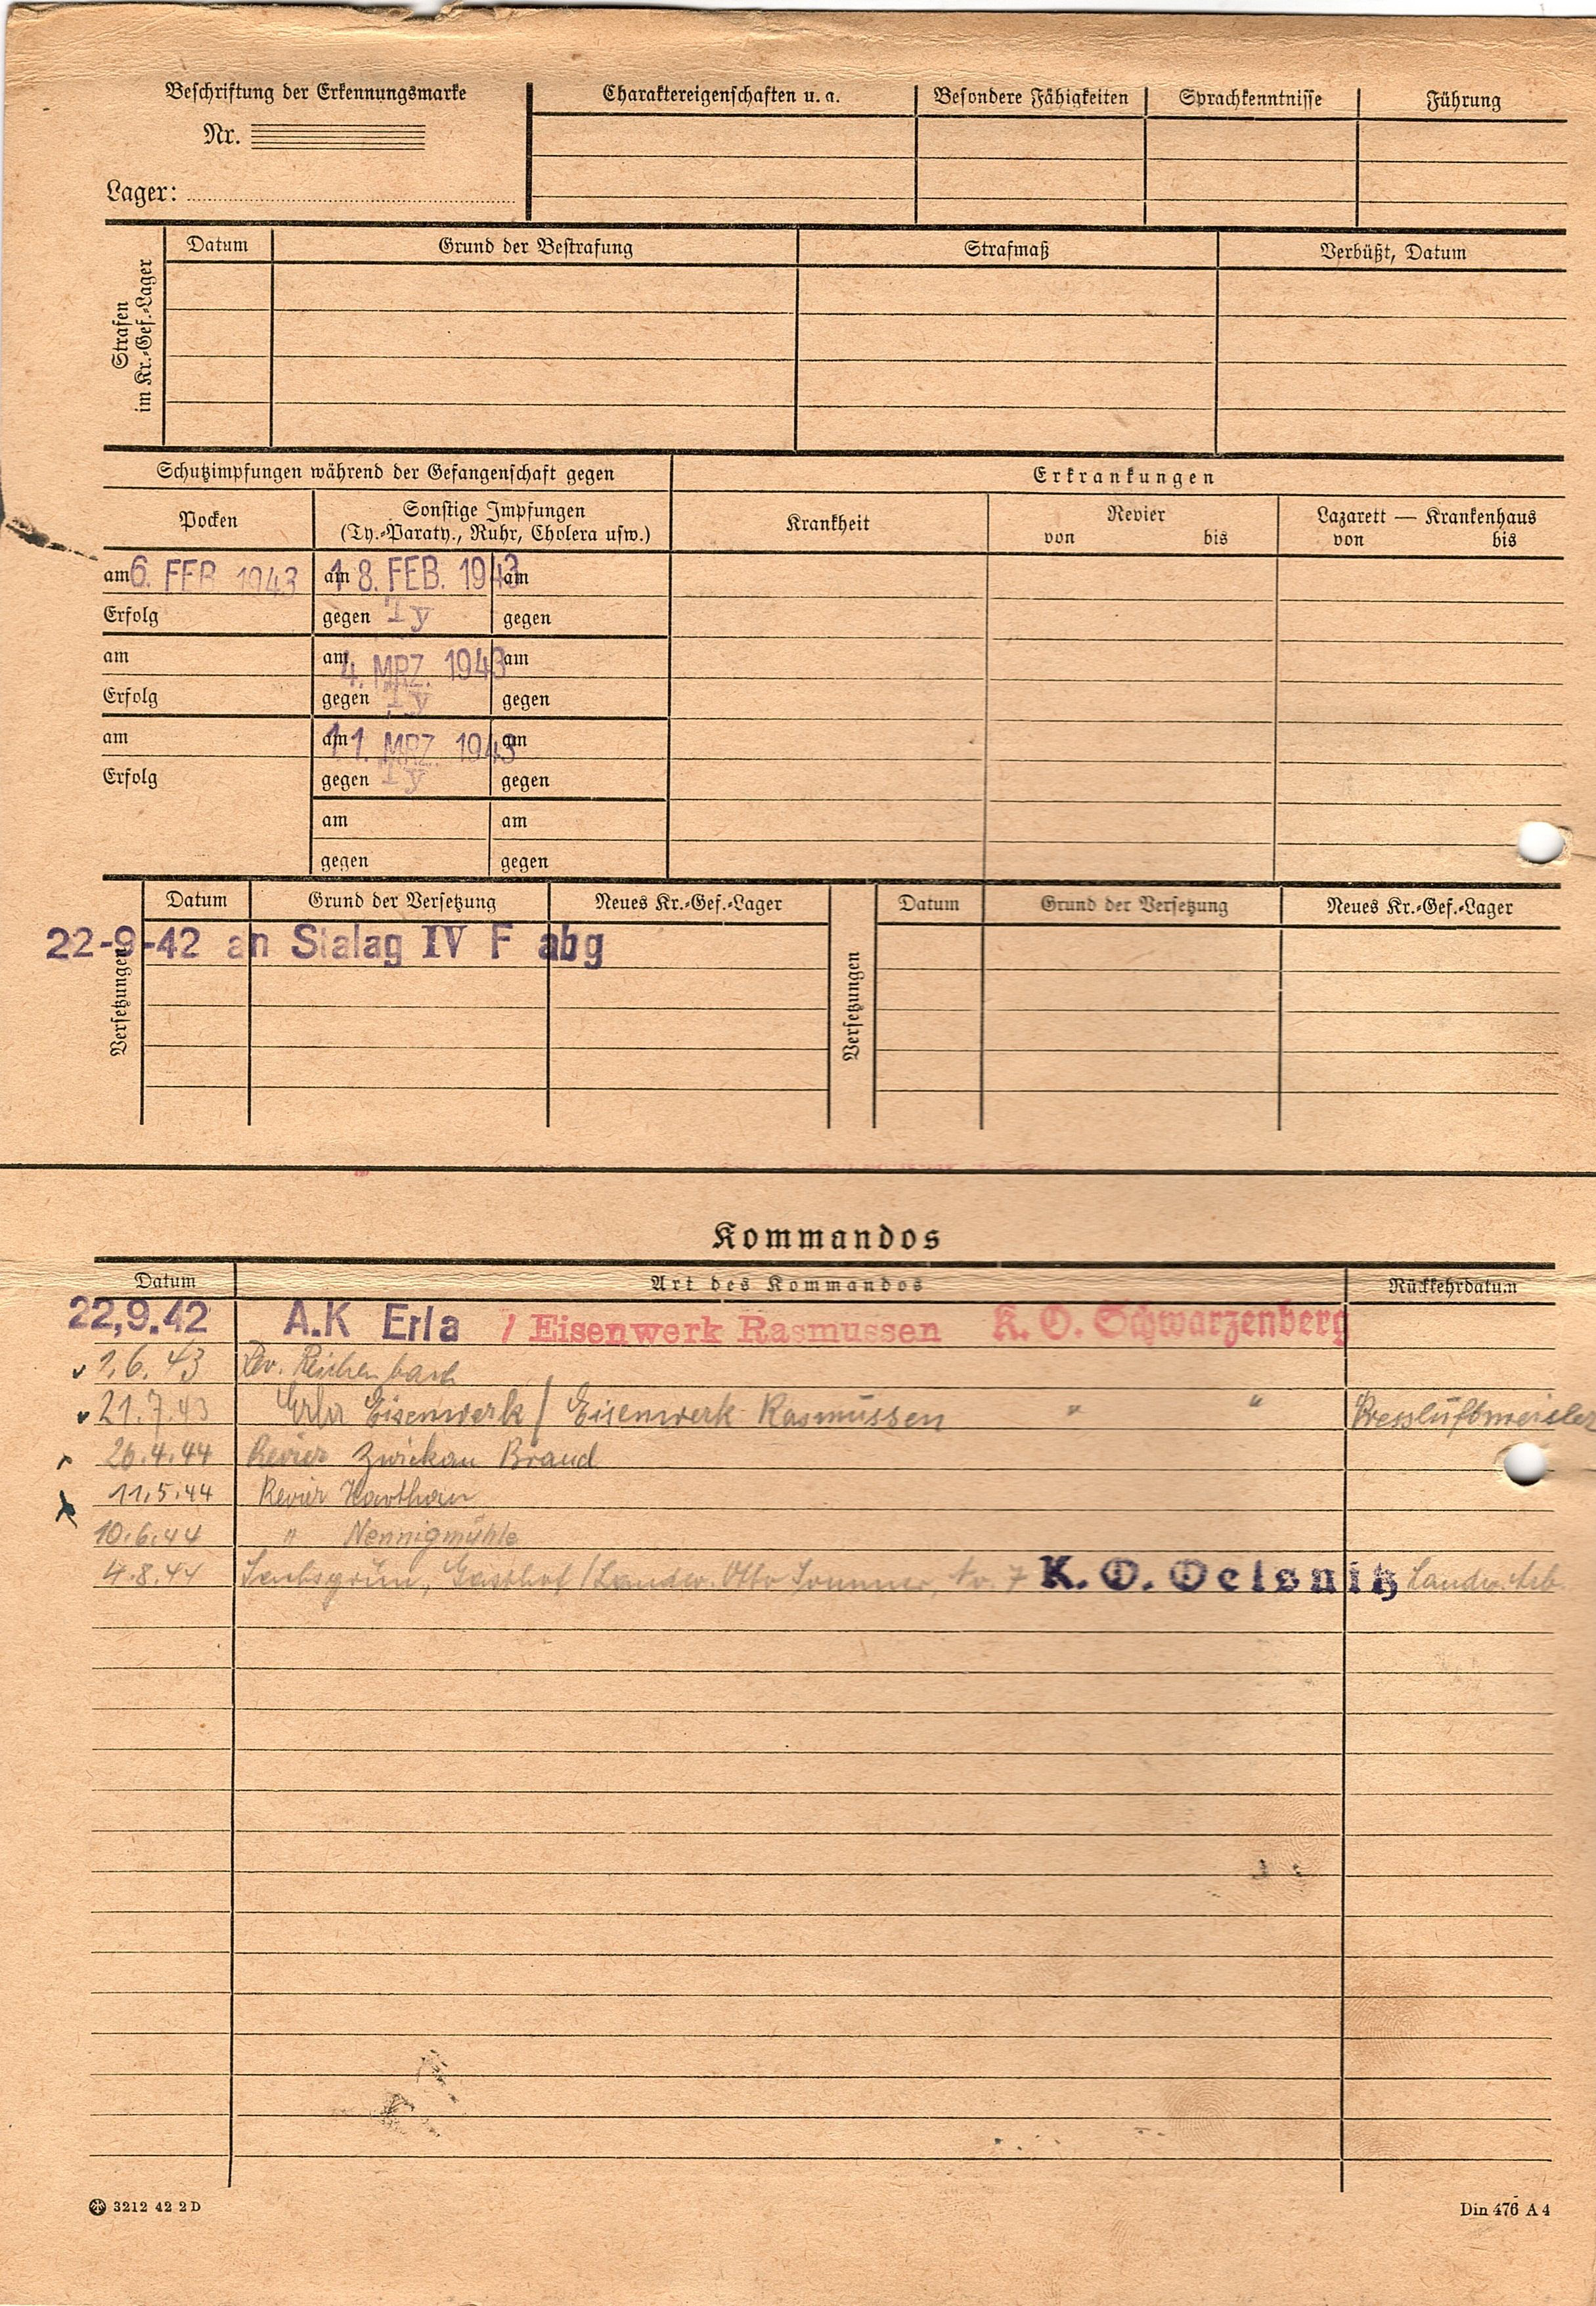 Beschriftung der Erkennungsmarke
Nr.
Lager:
Charaktereigenschaften u. a. Besondere Fähigkeiten Sprachkenntnisse Führung
Strafen
im Kr.-Gef.-Lager
Datum Grund der Bestrafung Strafmaß Verbüßt, Datum
Schutzimpfungen während der Gefangenschaft gegen Erkrankungen
Pocken Sonstige Impfungen
(Ty.-Paraty., Ruhr, Cholera usw.)
Krankheit Revier
von bis
Lazarett — Krankenhaus
von bis
am 6. FEB 1943 am 18. FEB. 1943 am
Erfolg gegen Ty gegen
am am 4. MRZ. 1943 am
Erfolg gegen Ty gegen
am am 11. MRZ. 1943 am
Erfolg gegen Ty gegen
am am
gegen gegen
Versetzungen Datum Grund der Versetzung Neues Kr.-Gef.-Lager Versetzungen Datum Grund der Versetzung Neues Kr.-Gef.-Lager
22-9-42 an Stalag IV F abg
Kommandos
Datum Art des Kommandos Rückkehrdatum
22,9.42 A.K Erla / Eisenwerk Rasmussen K. O. Schwarzenberg
1.6.43 Rev. Reichenbach
21.7.43 Erla Eisenwerk / Eisenwerk Rasmussen " " Pressluftmeisler
26.4.44 Revier Zwickau Brand
11.5.44 Revier Harthau
10.6.44 " Nennigmühle
4.8.44 Sachsgrün, Gasthof / Landw. Otto Sommer, 7 K. O. Oelsnitz Landw. Arb.
3212 42 2 D
Din 476 A 4